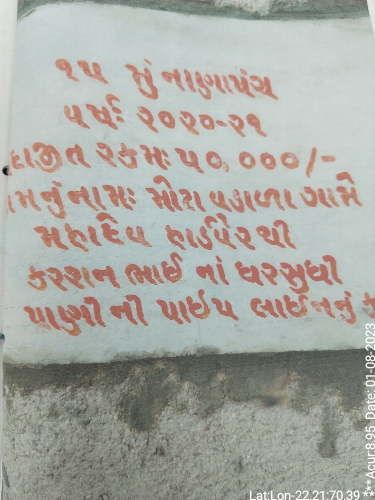 ૧૫ મું નાણાપંચ
વર્ષઃ ૨૦૨૦-૨૧
દાજીત રકમઃ ૫૦,૦૦૦/-
મનું નામઃ મોટા વડાળા ગામે
મહાદેવ હાર્ડવેરથી
કરશન ભાઈ નાં ઘરસુધી
પાણી ની પાઈપ લાઈનનું ક
Lat:Lon-22.21:70.39 ***Acur:8.95 Date: 01-08-2023